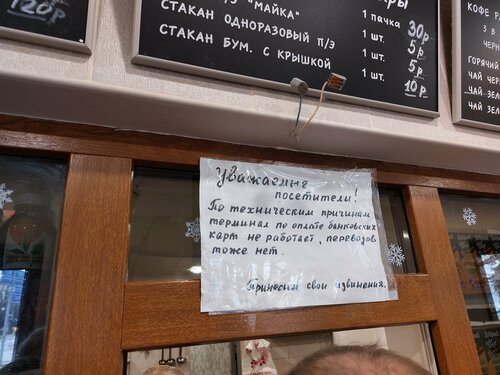 120р
"МАЙКА" 1 пачка 30р
СТАКАН ОДНОРАЗОВЫЙ П/Э 1 шт. 5р
СТАКАН БУМ. С КРЫШКОЙ 1 шт. 5р
1 шт. 10р
КОФЕ
3 В
ЧЕРН
ГОРЯЧИЙ
ЧАЙ ЧЕР
ЧАЙ ЗЕЛ
ЧАЙ ЗЕЛ
Уважаемые
посетители!
По техническим причинам
терминал по оплате банковских
карт не работает, переводов
тоже нет.
Приносим свои извинения.